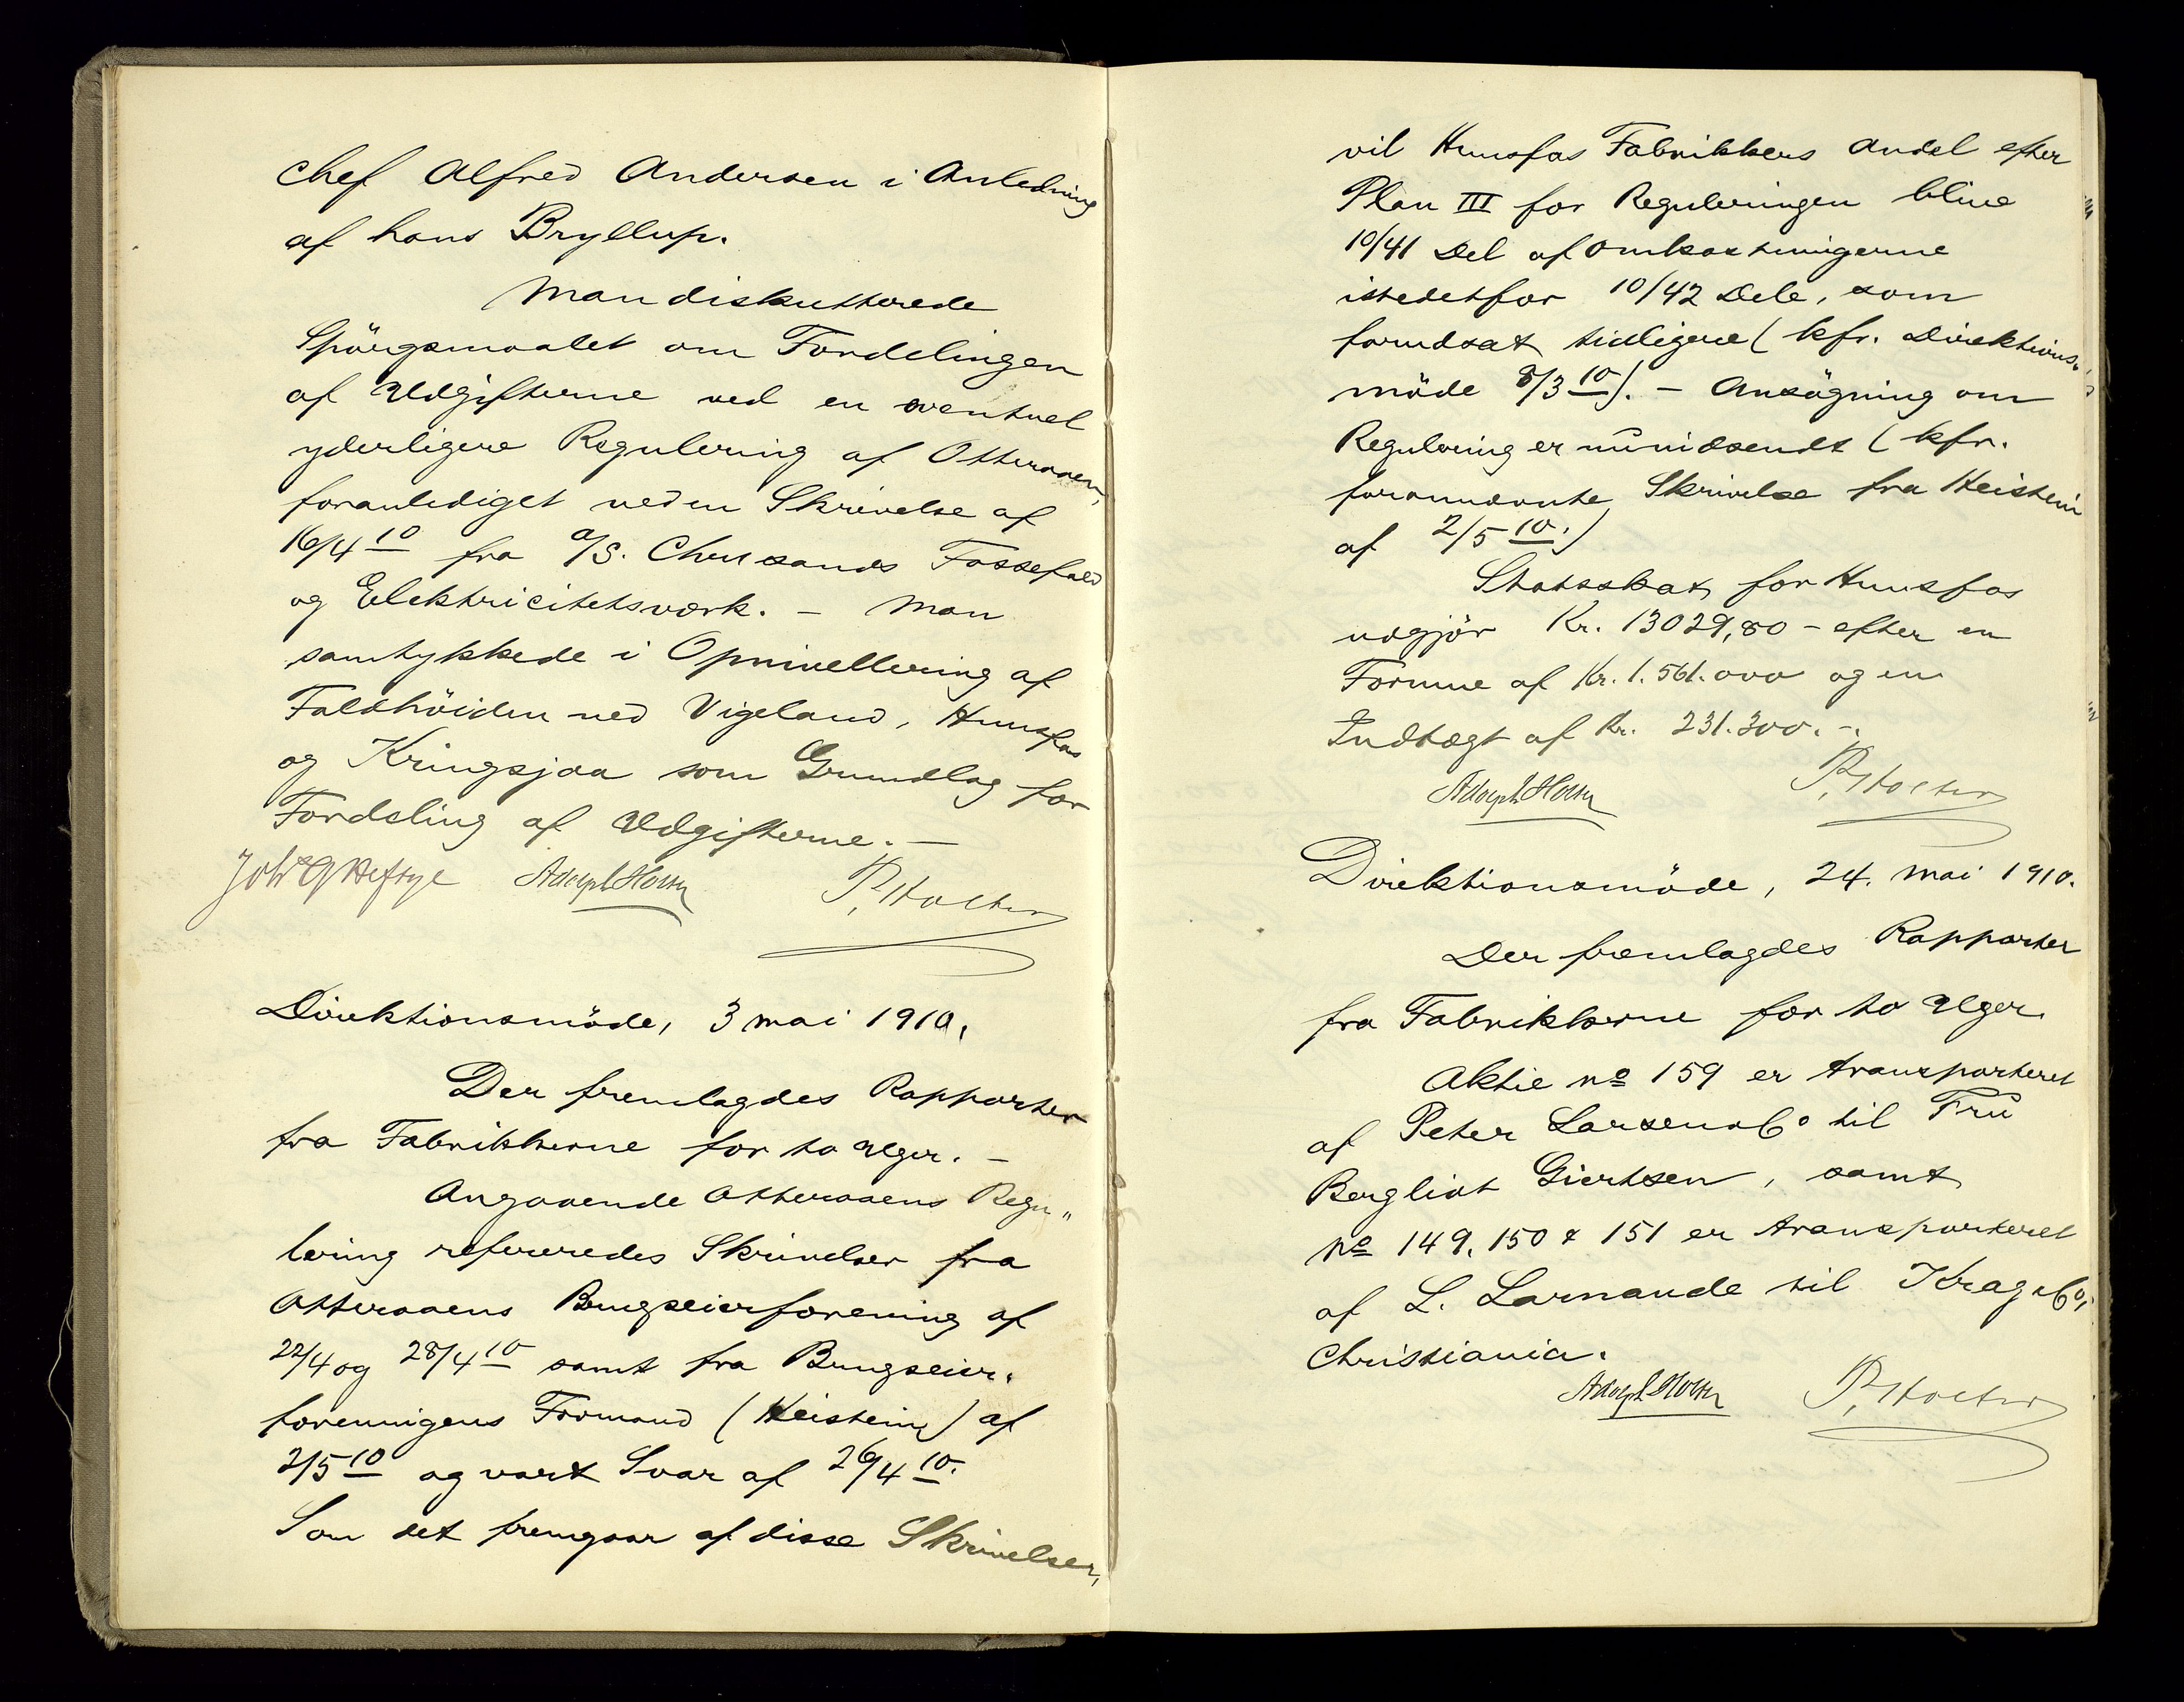 Chef Alfred Andersen i Anledning
af hans Bryllup.
Man diskutterede
Spörgsmaalet om Fordelingen
af Udgifterne ved en eventuel
yderligere Regulering af Otteraaen,
foranlediget ved en Skrivelse af
16/4 10 fra A/S. Chrissands Fossefald
og Elektricitetsværk. – Man
samtykkede i Opnivellering af
Faldhöiden ved Vigeland, Hunsfos
og Kringsjaa som Grundlag for
Fordeling af Udgifterne. –
Joh Heftye Adolph Holter P. Holter
Direktionsmöde, 3 mai 1910.
Der fremlagdes Rapporter
fra Fabrikkerne for to Uger. –
Angaaende Otteraaens Regu„
lering refereredes Skrivelser fra
Otteraaens Brugseierforening af
22/4 og 28/4 10 samt fra Brugseier„
foreningens Formand (Heistein) af
2/5 10 og vort Svar af 26/4 10.
Som det fremgaar af disse Skrivelser,
vil Hunsfos Fabrikkers Andel efter
Plan III for Reguleringen blive
10/41 Del af Omkostningerne
istedetfor 10/42 Dele, som
forudsat tidligere (kfr. Direktions„
möde 8/3 10). – Ansögning om
Regulering er nu indsendt (kfr.
forannævnte Skrivelse fra Heistein
af 2/5 10.)
Statsskat for Hunsfos
udgjör Kr. 13029,80 – efter en
Formue af Kr. 1.561.000 og en
Indtægt af Kr. 231.300. –.
Adolph Holter P. Holter
Direktionsmöde, 24. mai 1910.
Der fremlagdes Rapporter
fra Fabrikkerne for to Uger.
Aktie No 159 er transporteret
af Peter Larsen & Co til Fru
Bergliot Giertsen, samt
No 149, 150 & 151 er transporteret
af L. Larnaude til Krag & Co,
Christiania.
Adolph Holter P. Holter